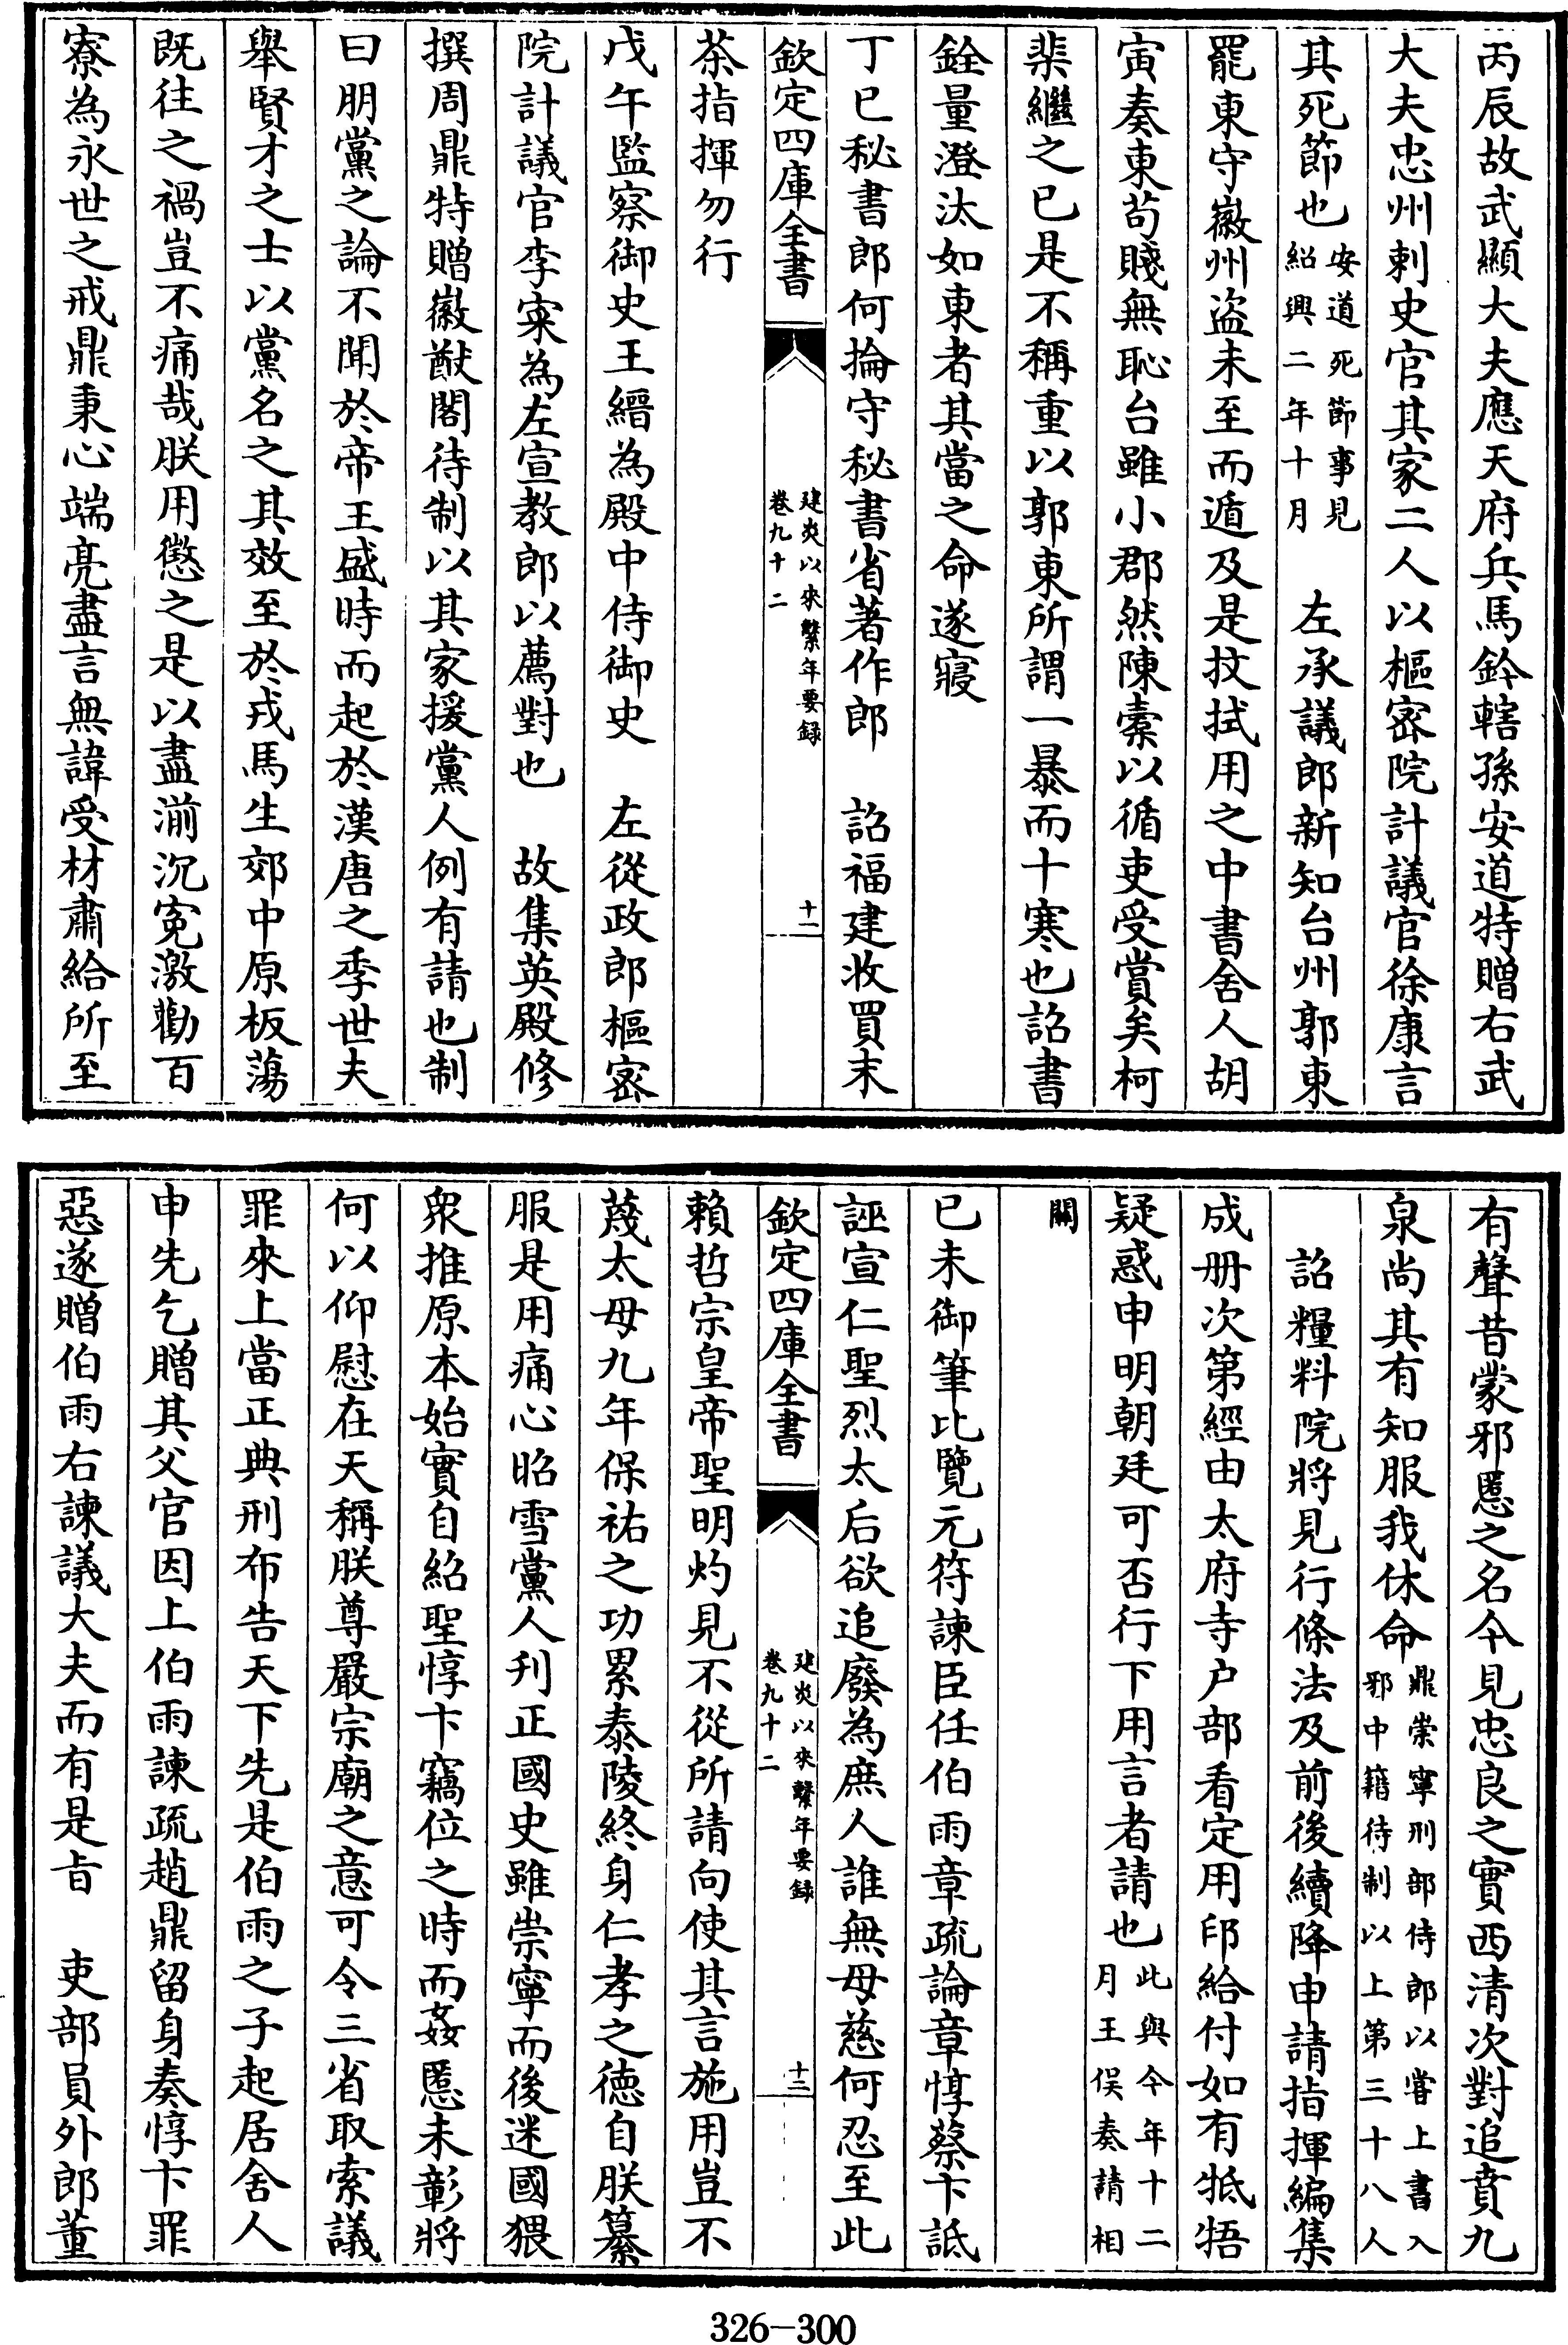 丙辰故武顯大夫應天府兵馬鈐轄孫安道特贈右武
大夫忠州刺史官其家二人以樞密院計議官徐康言
其死節也安道死節事見紹興二年十月　左承議郎新知台州郭東
罷東守徽州盜未至而遁及是抆拭用之中書舍人胡
寅奏東苟賤無恥台雖小郡然陳橐以循吏受賞矣柯
棐繼之已是不稱重以郭東所謂一暴而十寒也詔書
銓量澄汰如東者其當之命遂寢
丁巳秘書郎何掄守秘書省著作郎　詔福建收買末
欽定四庫全書　建炎以來繫年要録卷九十二　十一
茶指揮勿行
戊午監察御史王縉為殿中侍御史　左從政郎樞密
院計議官李寀為左宣教郎以薦對也　故集英殿修
撰周鼎特贈徽猷閣待制以其家援黨人例有請也制
曰朋黨之論不聞於帝王盛時而起於漢唐之季世夫
舉賢才之士以黨名之其效至於戎馬生郊中原板蕩
既往之禍豈不痛哉朕用懲之是以盡湔沉寃激勸百
寮為永世之戒鼎秉心端亮盡言無諱受材肅給所至
有聲昔蒙邪慝之名今見忠良之實西清次對追賁九
泉尚其有知服我休命鼎崇寧刑部侍郎以嘗上書入邪中籍待制以上第三十八人
詔糧料院將見行條法及前後續降申請指揮編集
成册次第經由太府寺户部看定用印給付如有牴牾
疑惑申明朝廷可否行下用言者請也此與今年十二月王俁奏請相
關
已未御筆比覽元符諫臣任伯雨章疏論章惇蔡卞詆
誣宣仁聖烈太后欲追廢為庶人誰無母慈何忍至此
欽定四庫全書　建炎以來繫年要録卷九十二　十二
賴哲宗皇帝聖明灼見不從所請向使其言施用豈不
蔑太母九年保祐之功累泰陵終身仁孝之德自朕纂
服是用痛心昭雪黨人刋正國史雖崇寧而後迷國猥
衆推原本始實自紹聖惇卞竊位之時而姦慝未彰將
何以仰慰在天稱朕尊嚴宗廟之意可令三省取索議
罪來上當正典刑布告天下先是伯雨之子起居舍人
申先乞贈其父官因上伯雨諫疏趙鼎留身奏惇卞罪
惡遂贈伯雨右諫議大夫而有是㫖　吏部員外郎董
326-300